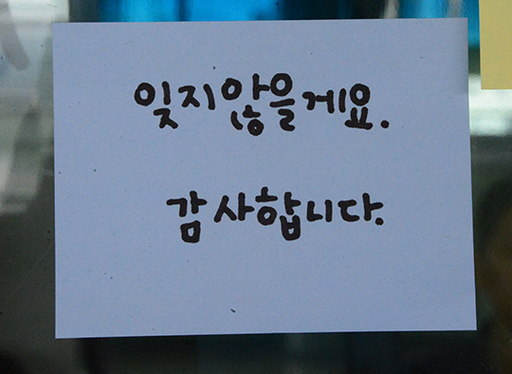 잊지않을게요.
감사합니다.